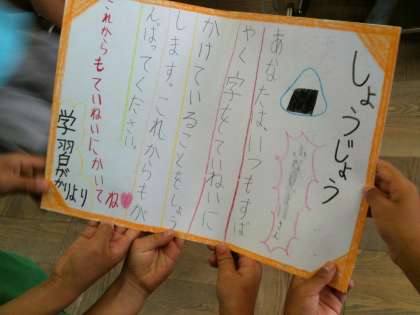 しょうじょう
あなたは、いつもすば
やく字をていねいに
かけていることをしょう
します。これからもが
んばってください。
これからもていねいにかいてね
学習がかりより